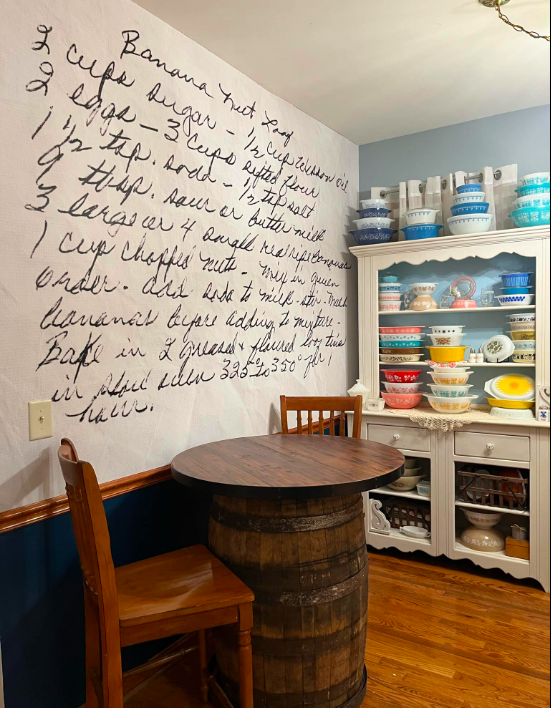 Banana Nut Loaf
2 cups sugar - 1/2 cup Wesson oil
2 eggs - 3 cups sifted flour
1 1/2 tsp. soda - 1/2 tsp salt
9 tbsp. sour or butter milk
3 large or 4 small real ripe bananas
1 cup chopped nuts - mix in given
order. add soda to milk - stir. mash
bananas before adding to mixture -
Bake in 2 greased & floured loaf tins
in slow oven 325° to 350° for 1
hour.